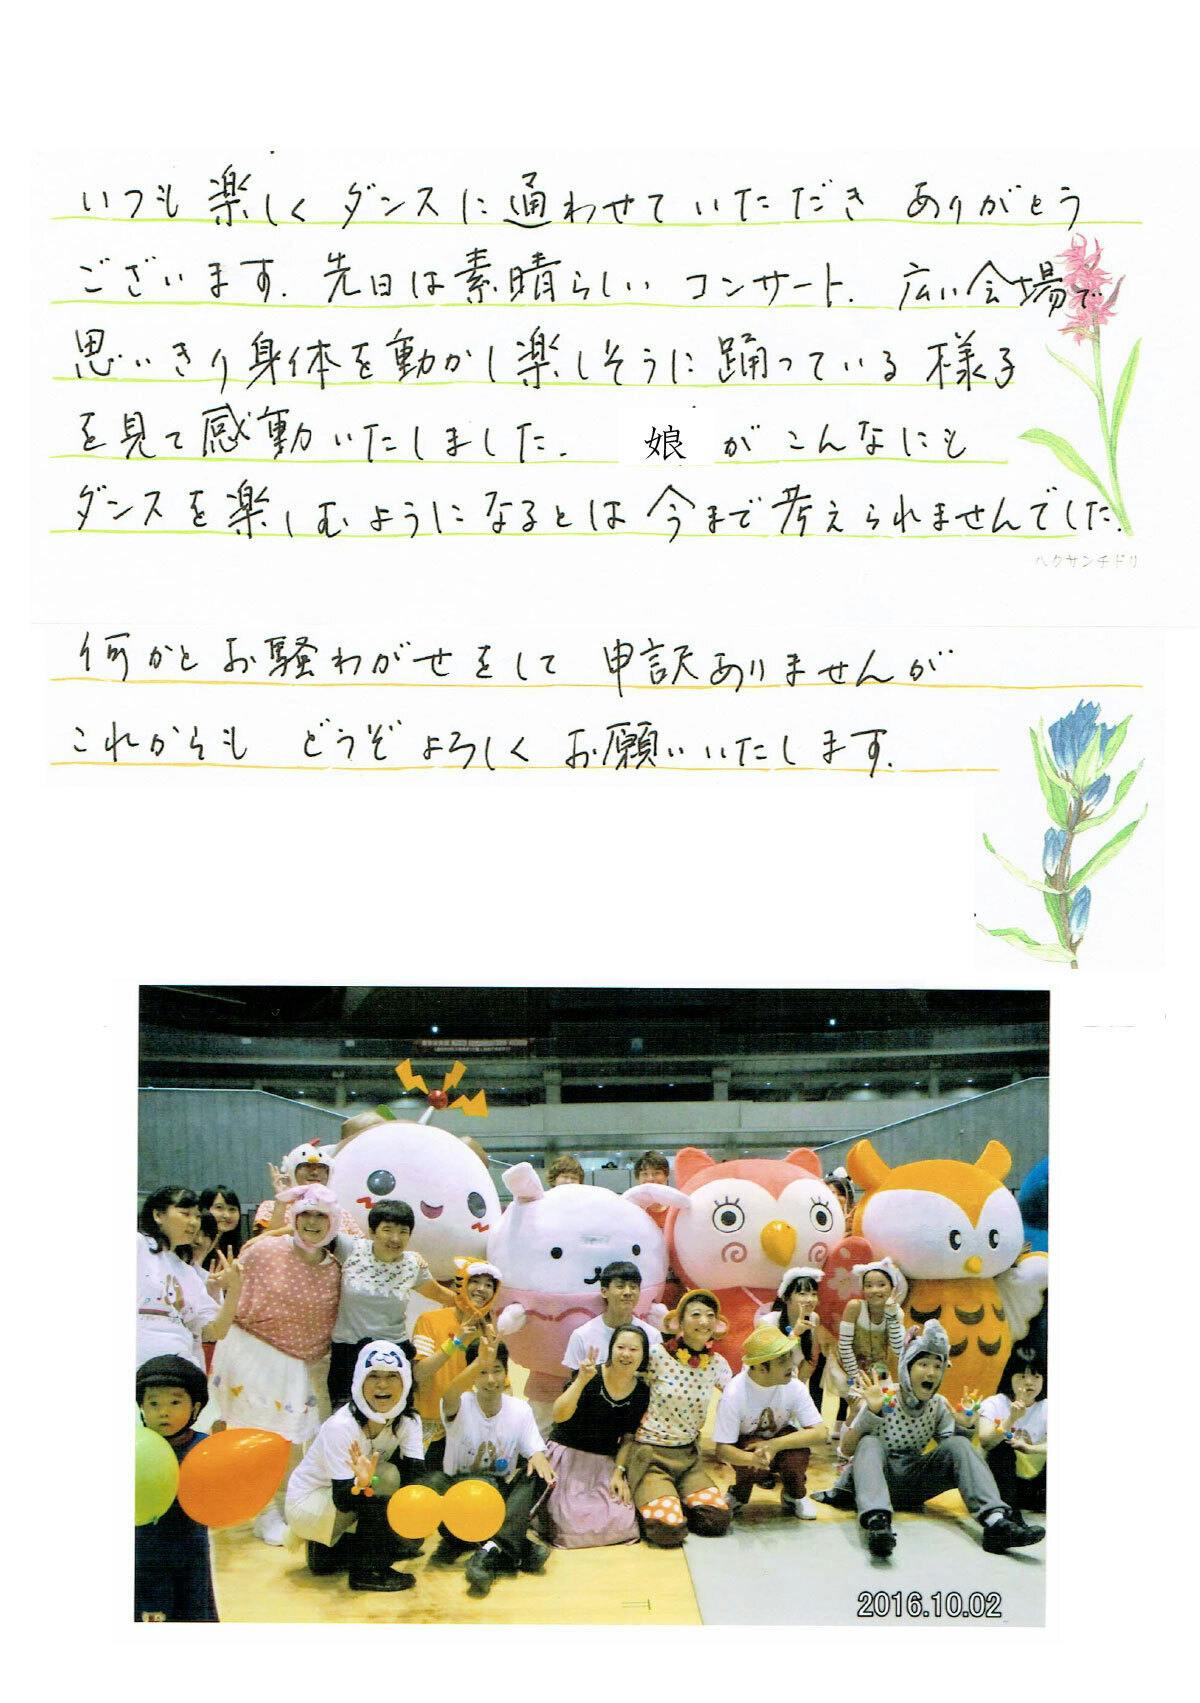 いつも楽しくダンスに通わせていただき ありがとう
ございます. 先日は素晴らしい コンサート. 広い会場で
思いきり身体を動かし楽しそうに踊っている様子
を見て感動いたしました. 娘 がこんなにも
ダンスを楽しむようになるとは今まで考えられませんでした.
ハクサンチドリ
何かとお騒わがせをして 申訳ありませんが
これからも どうぞよろしくお願いいたします.
2016.10.02